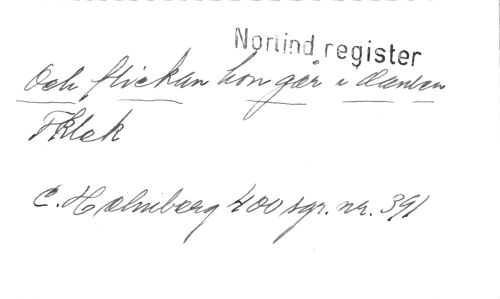 Norlind register
Och flickan hon går i dansen
Fklek
C. Holmberg 400 sgr. nr. 391